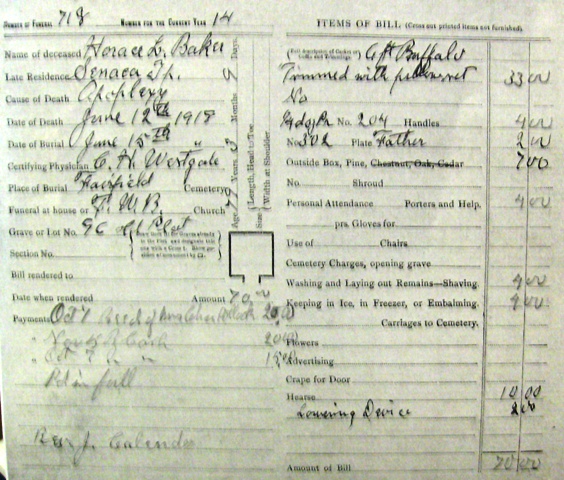 NUMBER OF FUNERAL 718 NUMBER FOR THE CURRENT YEAR 14
Name of deceased Horace L. Baker
Late Residence Seneca Tp.
Cause of Death Apoplexy
Date of Death June 12th 1918
Date of Burial June 15th "
Certifying Physician C. H. Westgate
Place of Burial Fairfield Cemetery
Funeral at house or F. W. B. Church
Grave or Lot No. 96 old Plat
Section No.
Bill rendered to
Date when rendered Amount 70.00
Payments Oct 1 Recd of Mrs 20.00
" Nov 20.00
" Oct " " 15.00
Pd in full
Rev J.
Age, Years, Months Days.
Size Length, Head to Toe. Width at Shoulder
ITEMS OF BILL (Cross out printed items not furnished).
6 ft Buffalo
Trimmed with 33 00
No
No. 204 Handles 4 00
No 302 Plate Father 2 00
Outside Box, Pine, Chestnut, Oak, Cedar 7 00
No. Shroud
Personal Attendance Porters and Help. 4 00
prs. Gloves for
Use of Chairs
Cemetery Charges, opening grave
Washing and Laying out Remains—Shaving. 4 00
Keeping in Ice, in Freezer, or Embalming. 4 00
Carriages to Cemetery.
Flowers
Advertising
Crape for Door
Hearse 10 00
Lowering Device 2 00
Amount of Bill 70 00